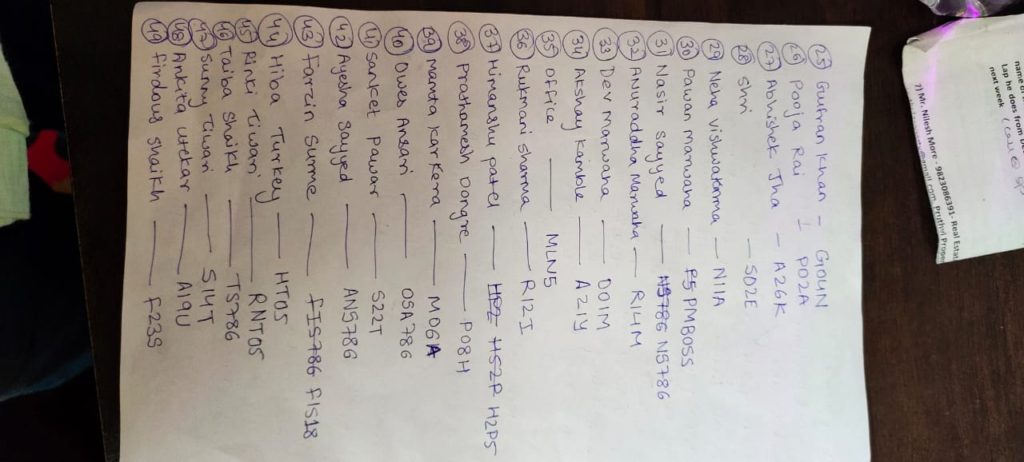 25 Gufran Khan - G104N
26 Pooja Rai - P02A
27 Abhishek Jha - A26K
28 Shri - SD2E
29 Neha Vishwakarma - N11A
30 Pawan Marwaha - PMBOSS
31 Nasir Sayyed - NS786
32 Anuraddha Marwaha - R14M
33 Dev Marwaha - D01M
34 Akshay Kamble - A21Y
35 Office - MLN5
36 Rukmani Sharma - R12I
37 Himanshu Patel - HS2P H2PS
38 Prathamesh Dongre - P08H
39 Mamta Karkera - M06A
40 Owes Ansari - OSA786
41 Sanket Pawar - S22T
42 Ayesha Sayyed - ANS786
43 Farzin Surme - FIS786 FIS18
44 Hiba Turkey - HT05
45 Rinki Tiwari - RNT05
46 Taiba Shaikh - TS786
47 Sunny Tiwari - S14T
48 Ankita Utekar - A19U
49 Firdous Shaikh - F23S
next week
7) Mr. Nilesh More - 9823086391- Real Estat